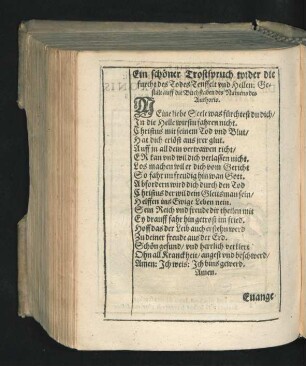 Ein schöner Trostspruch wider die
furcht des Todes Teuffels vnd Hellen: Ge-
stalt auff die Buchstaben des Namens des
Authoris.
MEine liebe Seele was fürchtest du dich/
In die Helle wirstu fahren nicht.
Christus mit seinem Tod vnd Blut/
Hat dich erlöst aus zer glut.
Auff in all dein vertrawen richt/
ER kan vnd wil dich verlassen nicht.
Los machen wil er dich vom Gericht
So fahr nu freudig hin was Gott.
Abfordern wird dich durch den Tod
Christus der wil dein Gleitsman sein/
Helffen ins Ewige Leben nein.
Sein Reich vnd freude dir theilen mit
Ey drauff fahr hin getrost im fried.
Hoff das der Leib auch erstehn werd
Zu deiner freude aus der Erd.
Schön gesund/ vnd herrlich verklert
Ohn all Kranckheit/ angest vnd beschwerd/
Amen: Ich weis: Ich bins gewerd.
Amen.
Euange